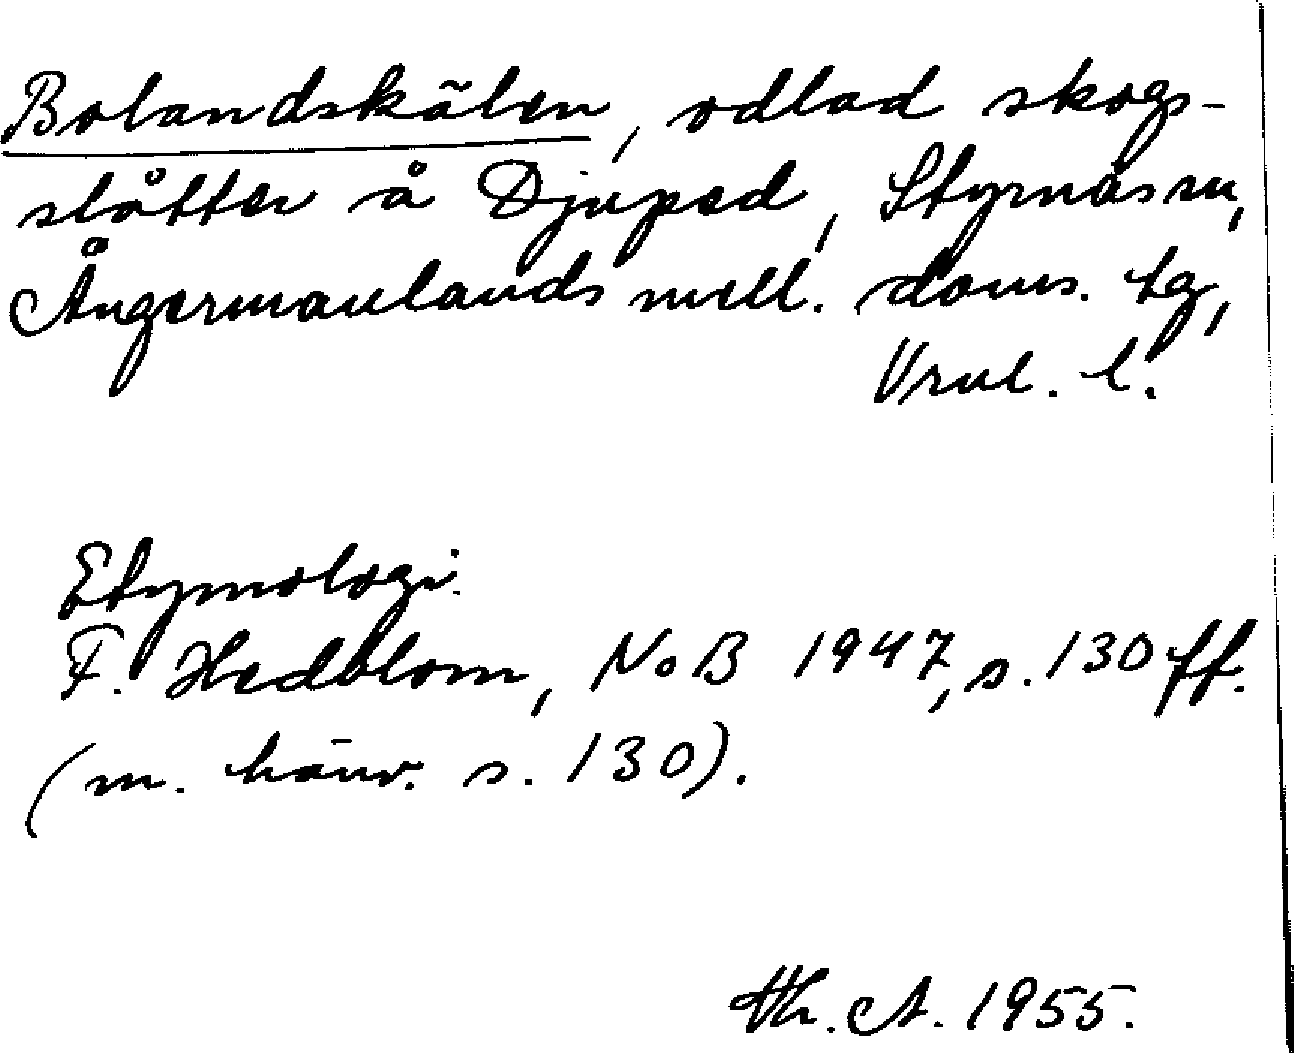 Bolandskälen, odlad skogs-
slåtter å Djuped, Styrnäs sn,
Ångermanlands mell. doms. tg,
Vrnl. l.
Etymologi.
F. Hedblom, NoB 1947, s. 130 ff.
(m. hänv. s. 130).
Th. A. 1955.